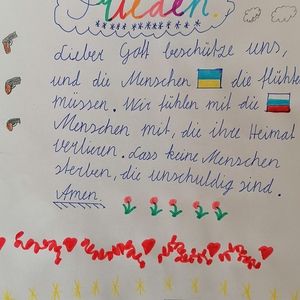 Frieden.
Lieber Gott beschütze uns,
und die Menschen die flüchten
müssen. Wir fühlen mit die
Menschen mit, die ihre Heimat
verlieren. Lass keine Menschen
sterben, die unschuldig sind.
Amen.